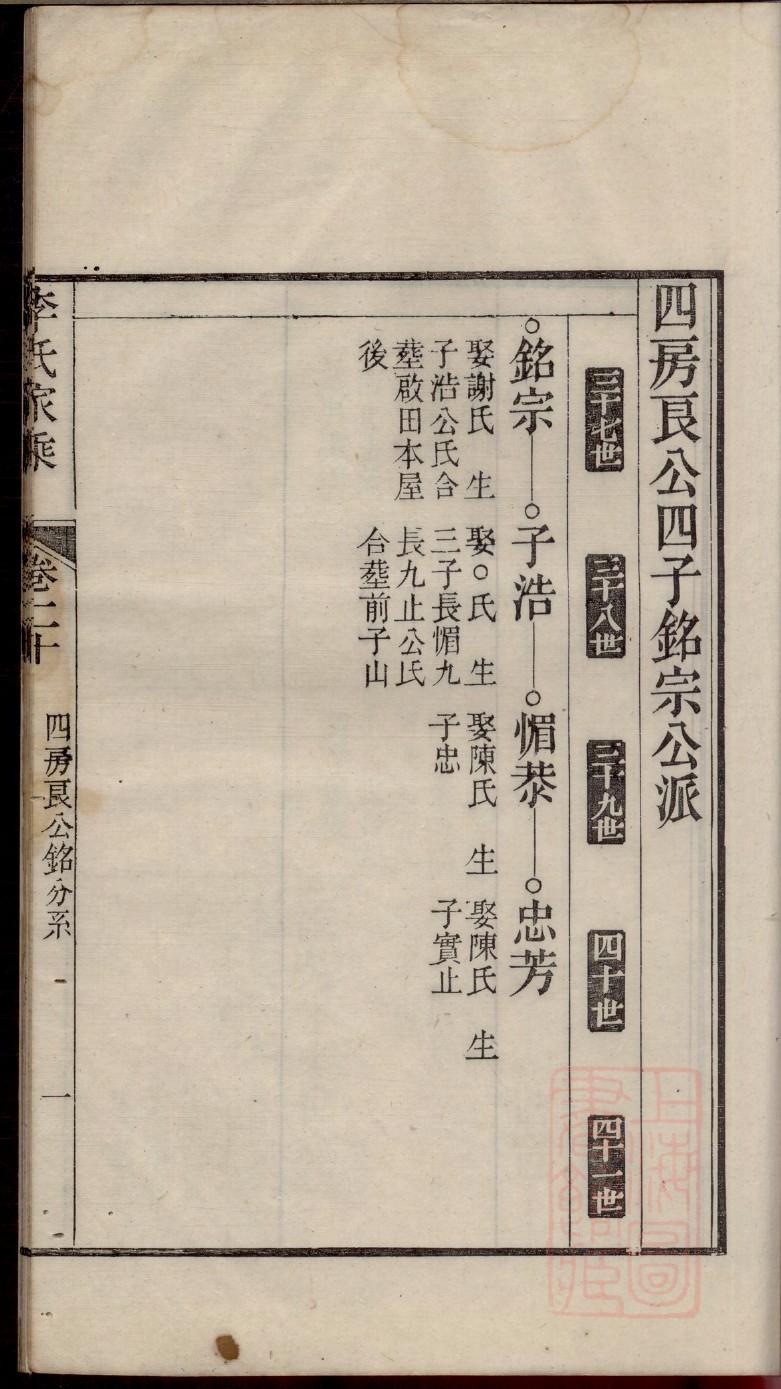 四房艮公四子銘宗公派
三十七世
三十八世
三十九世
四十世
四十一世
銘宗
娶謝氏 生
子浩公氏合
塟啟田本屋
後
子浩
娶○氏 生
三子長惂九
長九止公氏
合塟前子山
恭
娶陳氏 生
子忠
忠芳
娶陳氏 生
子實止
李氏家乘
卷二十
四房艮公銘分系
一